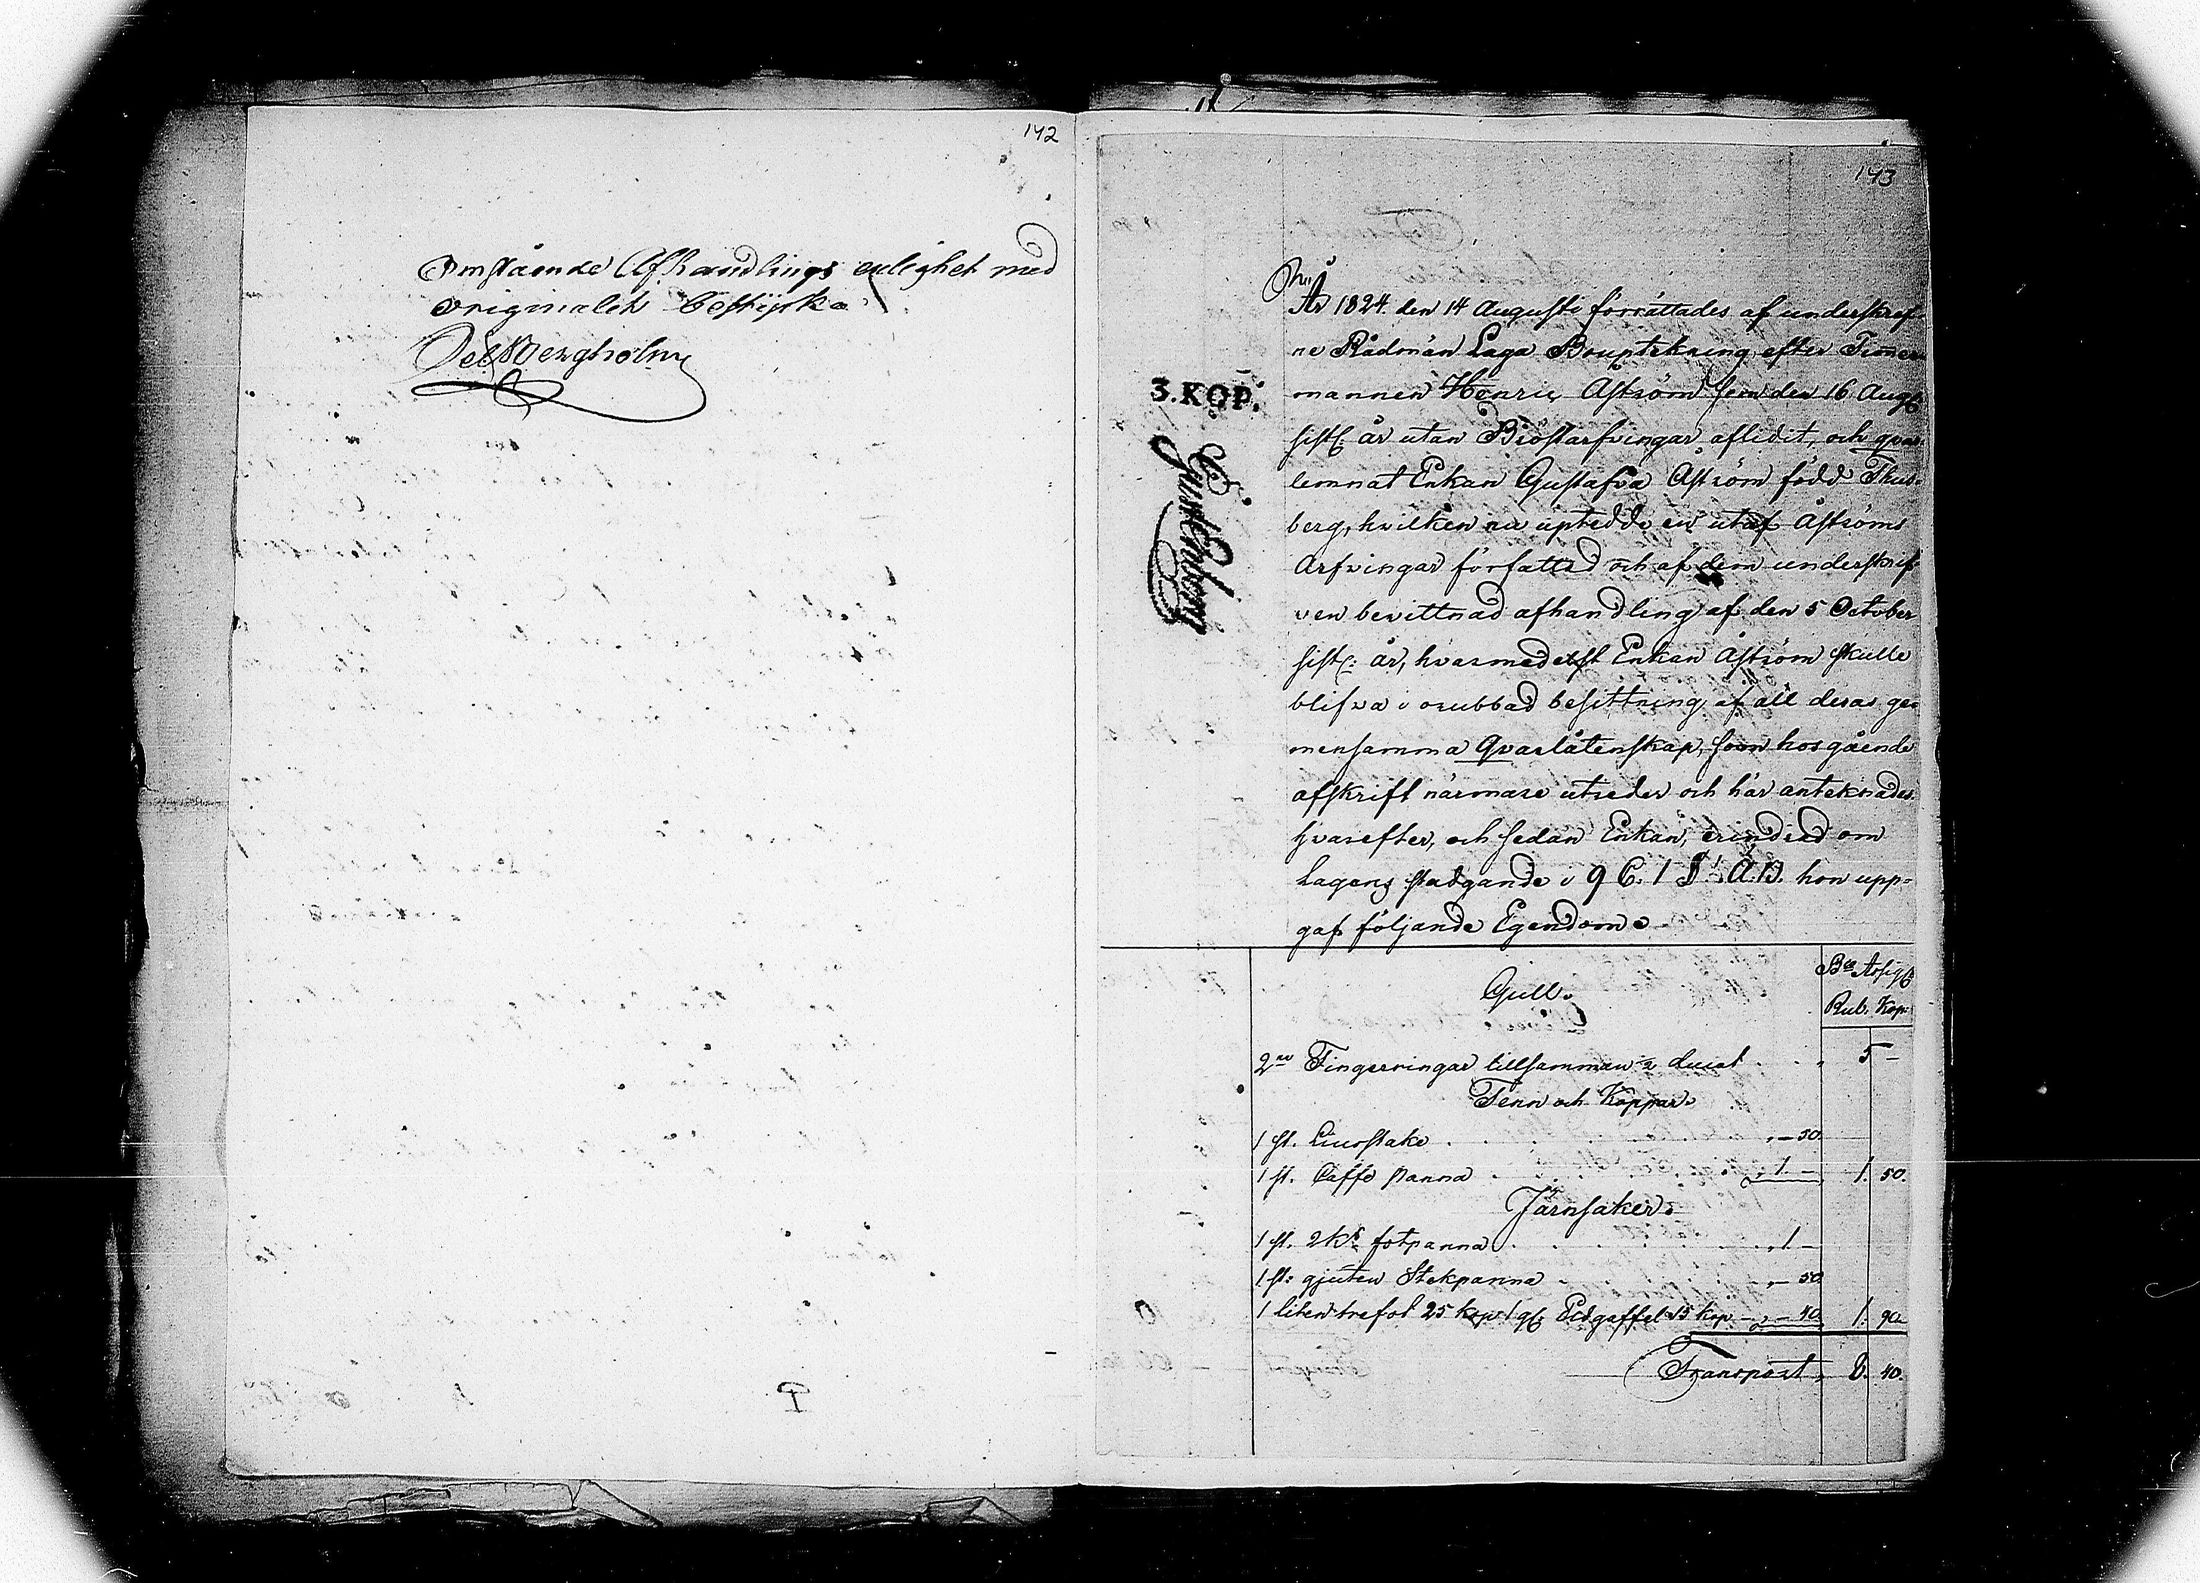 142
Omstående Afhandlings enlighet med
originalet bestyrka
143
År 1824 den 14 Augusti förrättades af underskref-
ne Rådmän Laga Bouptekning efter Timmer
mannen Henric Åström som den 16 Aug
sistl. år utan Bröstarfvingar aflidit, och qvar
lemnat Enkan Gustafva Åström född Thus-
berg, hvilken nu uptedde en utaf Åströms
Arfvingar författad och af dem underskrif
ven bevittnad afhandling af den 5 October
sistl: år, hvarmedelst Enkan Åström skulle
blifva i orubbad besittning af all deras ge-
mensamma Qvarlåtenskap, som hosgående
afskrift närmare utreder och här anteknades
hvarefter, och sedan Enkan, erindrad om
Lagens stadgande i 9 C. 1 §. Ä.B. hon upp-
gaf följande Egendom
3. KOP.
Gyldenborg
Gull.
Bco Assig
Rub. Kop.
2ne Fingerringar tillsamman ½ ducat 5 –
Tenn och Koppar.
1 st. Liusstake „ – 50.
1 st. Caffe panna „ 1 – 1. 50.
Järnsaker.
1 st. 2 Ks fotpanna „ 1 –
1 st: gjuten Stekpanna „ – 50
1 liten trefot 25 kop 1 gl Eldgaffel 15 kop – „ – 40. 1. 90.
Transport, 8. 40.